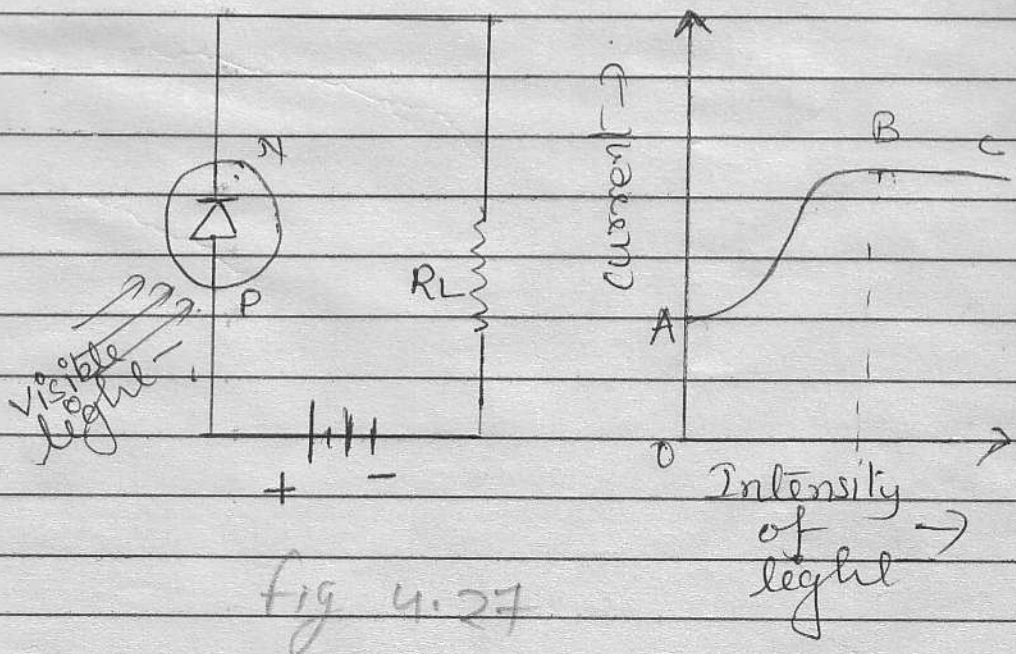 N
P
visible
light
RL
+ -
fig 4.27
Current →
A
B
C
O
Intensity
of →
light